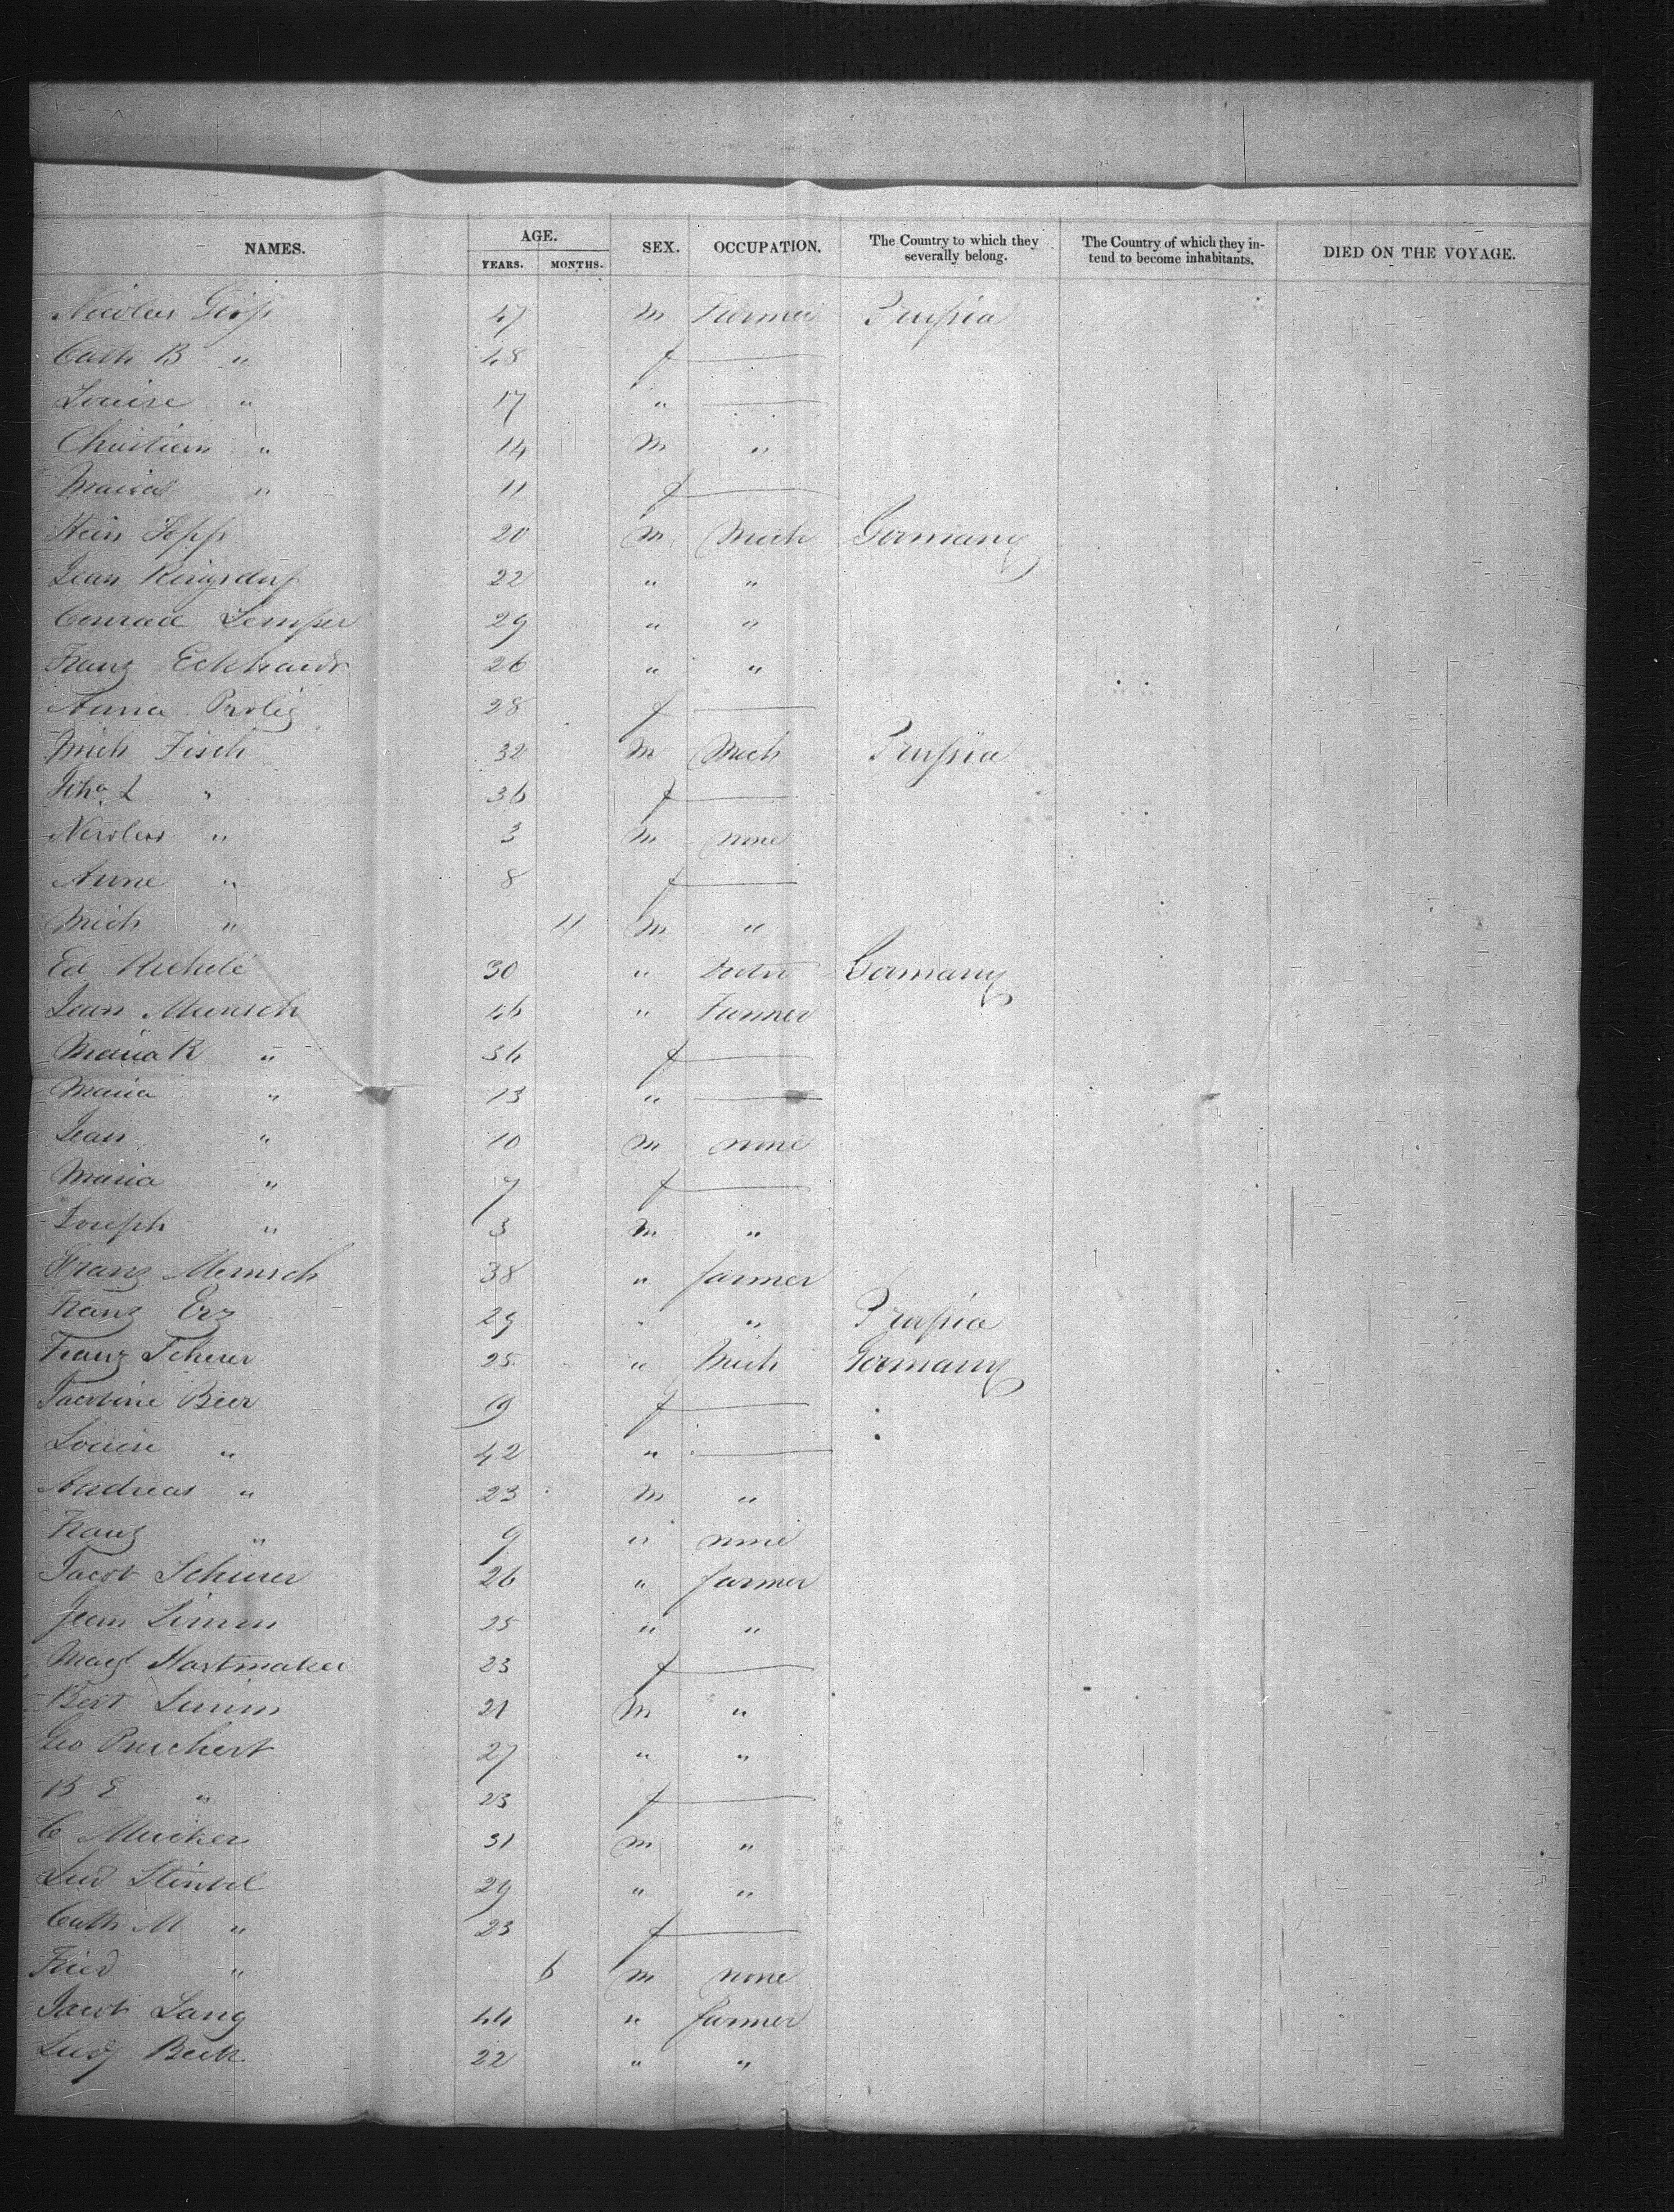 NAMES. AGE. SEX. OCCUPATION. The Country to which they severally belong. The Country of which they intend to become inhabitants. DIED ON THE VOYAGE.
YEARS. MONTHS.
Nicolas 47 m Farmer Prussia
Cath B " 48 f —
Louise " 17 " —
Christian " 14 m "
Maria " 11 f —
Hein 20 m Mech Germany
Jean Ringsdorf 22 " "
Conrad Semper 29 " "
Franz Eckhardt 26 " "
Anna 28 f —
Mich Fisch 32 m Mech Prussia
L " 36 f —
Nicolas " 3 m none
Anne " 8 f —
Mich " 11 m "
Ed Richelé 30 " Germany
Jean Mensch 46 " Farmer
Maria K " 34 f —
Maria " 13 " —
Jean " 10 m none
Maria " 7 f —
Joseph " 3 m "
Franz Mensch 38 " farmer
Franz Erz 29 " " Prussia
Franz Scherer 25 " Mech Germany
Jacobine Beer 19 f —
Louise " 42 " —
Andreas " 23 m "
Franz " 9 " none
Jacob Scherer 26 " farmer
Jean Simon 25 " "
Magd Hartmaker 23 f —
Bert Simon 21 m "
Geo 27 " "
B E " 23 f —
C 31 m "
Lud 29 " "
Cath M " 23 f —
Fried " 6 m none
Jacob Lang 44 " farmer
Ludg Beck 22 " "